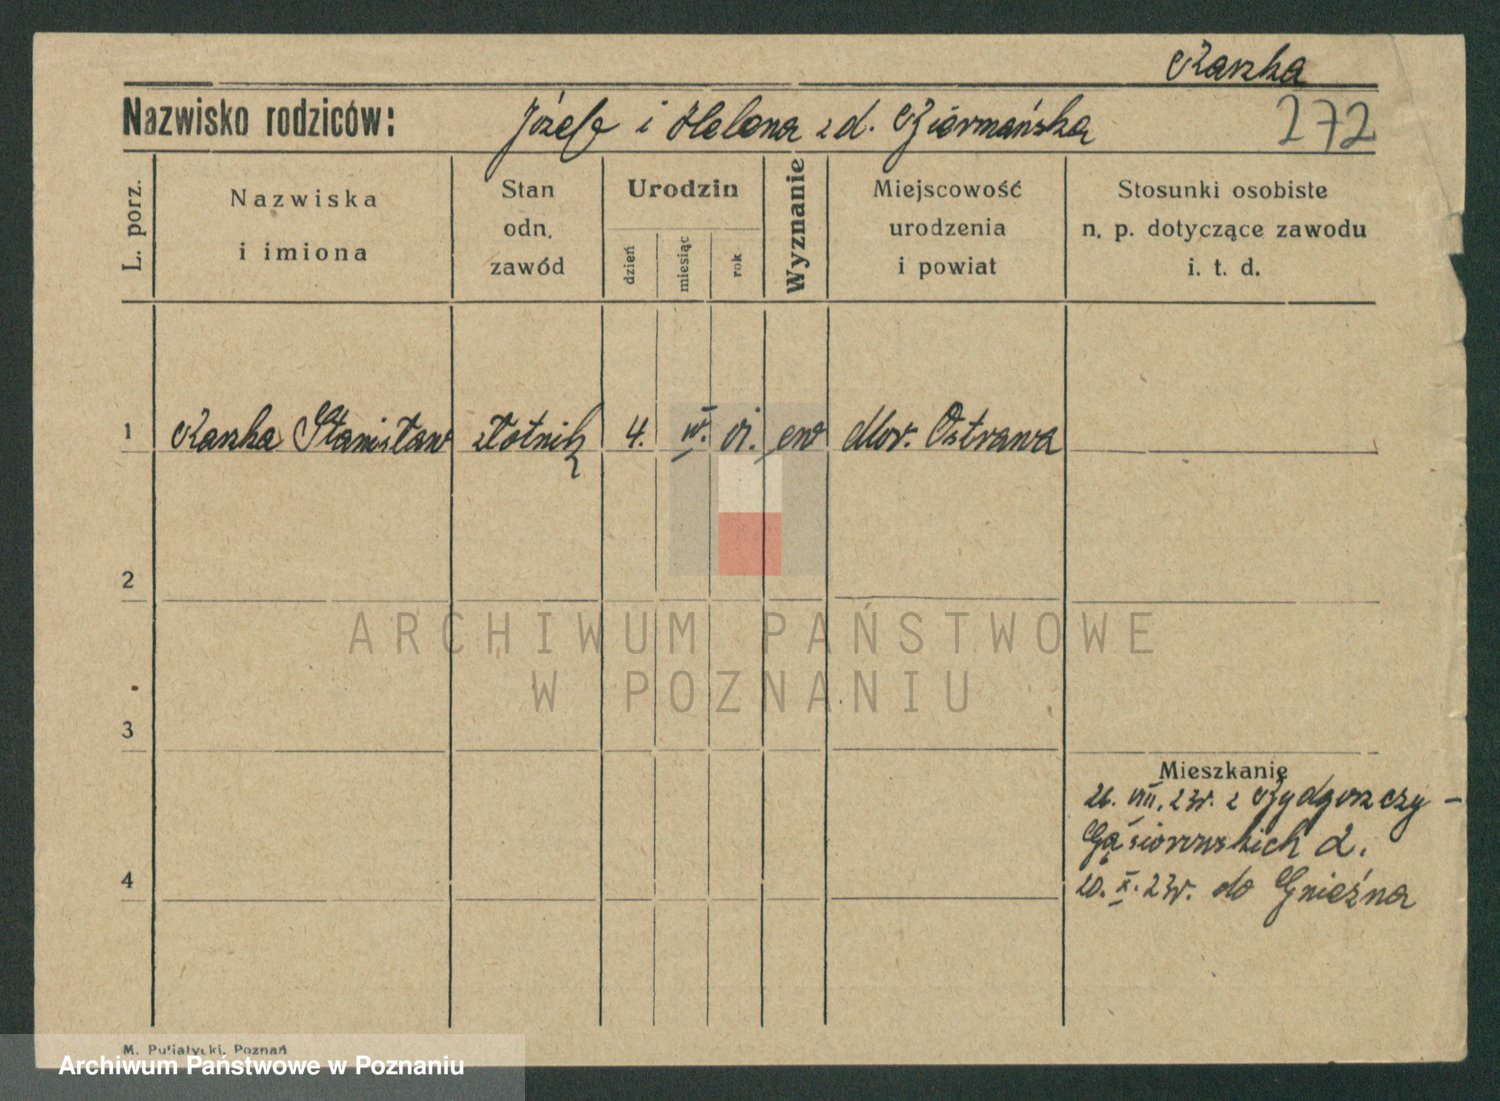 Raszka
Nazwisko rodziców: Józef i Helena z d. Ziermańska 272
L. porz.
Nazwiska
i imiona
Stan
odn.
zawód
Urodzin
dzień
miesiąc
rok
Wyznanie
Miejscowość
urodzenia
i powiat
Stosunki osobiste
n. p. dotyczące zawodu
i. t. d.
1 Raszka Stanisław złotnik 4. IV. 01. ew Mor. Ostrawa
2
3
4
Mieszkanie
26. VIII. 23r. z Bydgoszczy -
Gąsiorowskich 2.
20. X. 23r. do Gniezna
ARCHIWUM PAŃSTWOWE
W POZNANIU
M. Putiatycki, Poznań
Archiwum Państwowe w Poznaniu